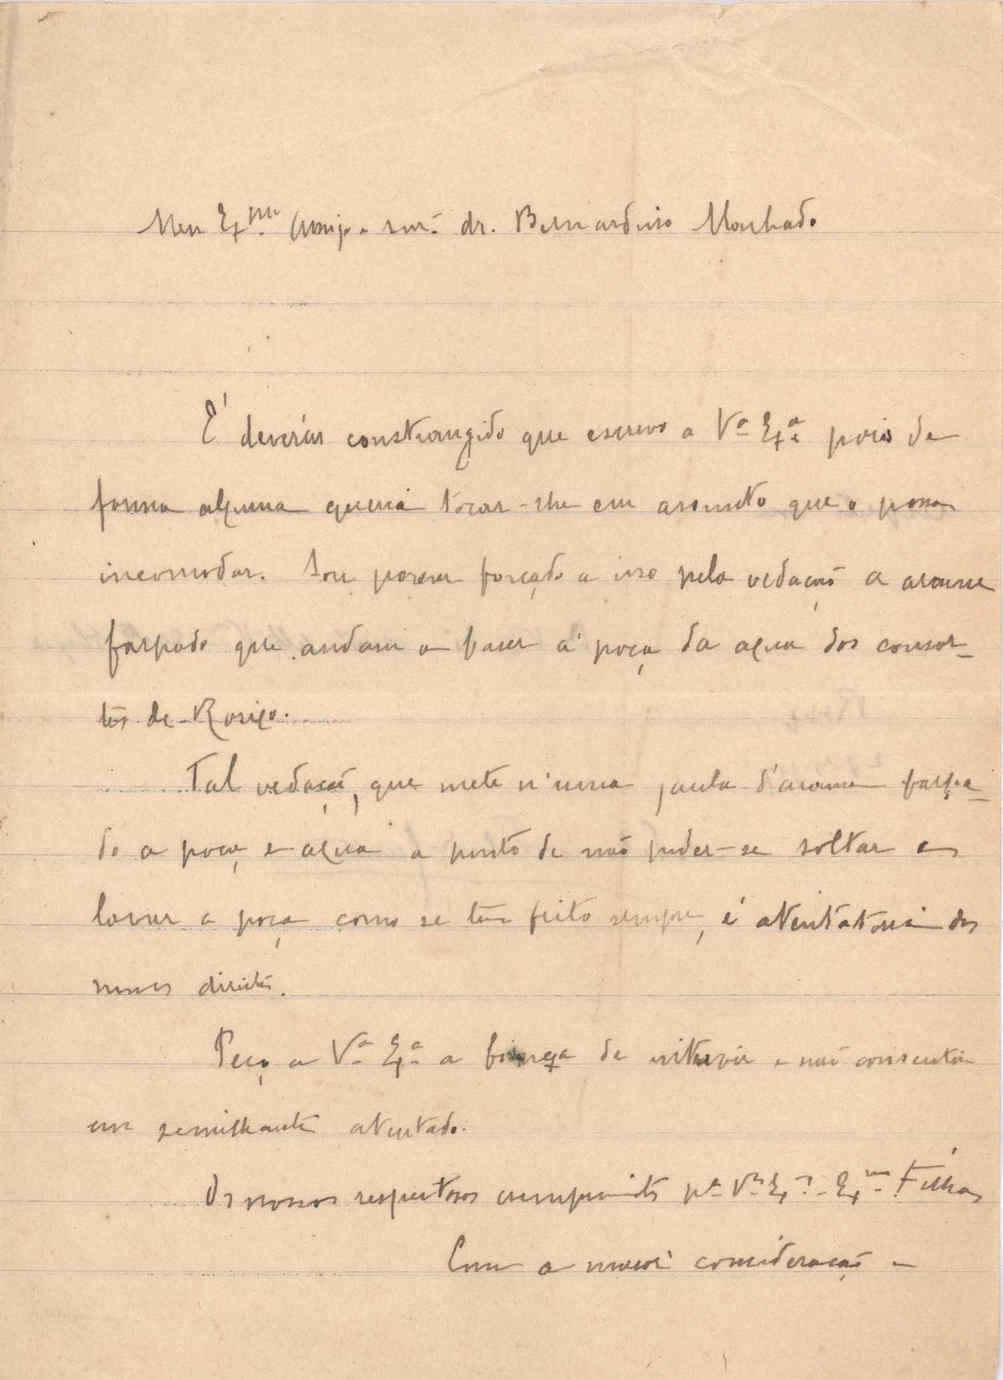 Meu Exmo Amigo e snr. dr. Bernardino Machado
É devéras constrangido que escrevo a Vª Exª pois de
forma alguma queria tocar-lhe em assunto que o possa
incomodar. Sou porem forçado a isso pela vedação a arame
farpado que andam a fazer á poça da agua dos consor-
tes de
Tal vedação, que mete n'uma jaula d'arame farpa-
do a poça e agua a ponto de não puder-se soltar e
lavar a poça como se tem feito sempre, é atentatoria dos
nossos direitos.
Peço a Vª Exª a fineza de intervir e não consentir
em semilhante atentado.
Os nossos respeitosos cumprimtos pª Vª Exª e Exmas Filhas
Com a maior consideração